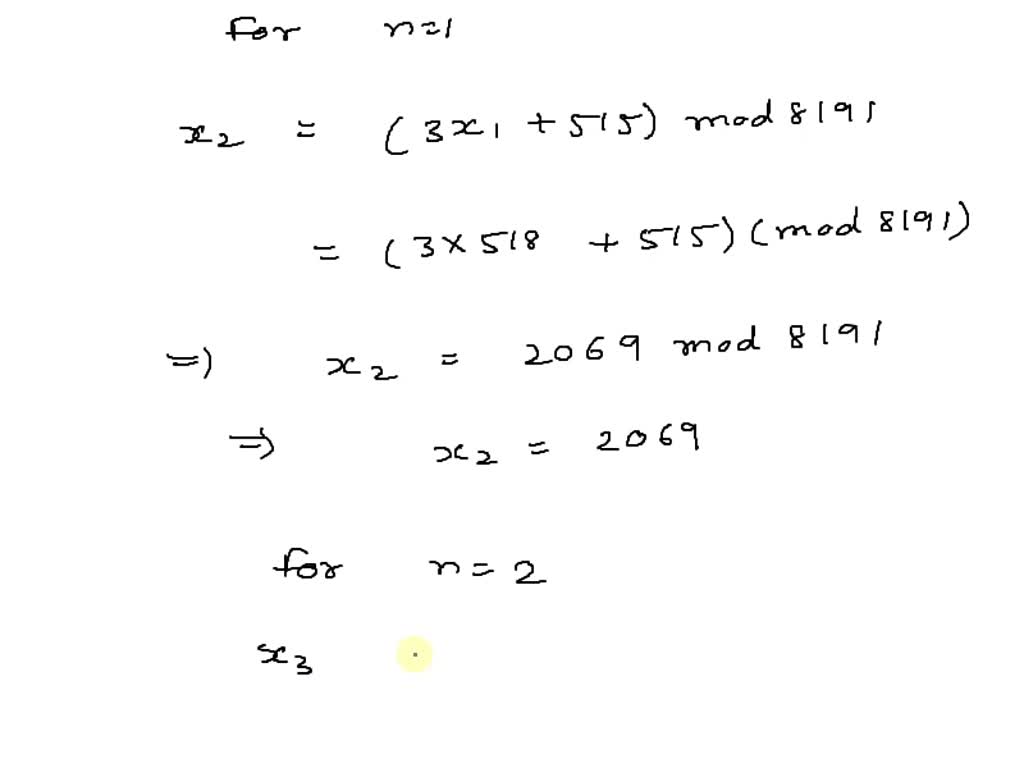 For n=1
x2 = (3x1 + 515) mod 8191
= (3×518 + 515) (mod 8191)
=) x2 = 2069 mod 8191
=> x2 = 2069
for n = 2
x3